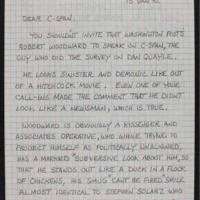 15 JAN 92
DEAR C-SPAN,
YOU SHOULDN'T INVITE THAT WASHINGTON POSTS
ROBERT WOODWARD TO SPEAK ON C-SPAN, THE
GUY WHO DID THE SURVEY ON DAN QUAYLE.
HE LOOKS SINISTER AND DEMONIC LIKE OUT
OF A HITCHCOCK MOVIE. EVEN ONE OF YOUR
CALL-INS MADE THE COMMENT THAT HE DIDN'T
LOOK LIKE A NEWSMAN, WHICH IS TRUE.
WOODWARD IS OBVIOUSLY A KISSENGER AND
ASSOCIATES OPERATIVE, WHO WHILE TRYING TO
PROJECT HIMSELF AS POLITICALLY UNALIGNED,
HAS A MARKED "SUBVERSIVE LOOK ABOUT HIM, SO
THAT HE STANDS OUT LIKE A DUCK IN A FLOCK
OF CHICKENS, HIS SMUG CAN'T BE FIRED SMILE
ALMOST IDENTICAL TO STEPHEN SOLARZ WHO